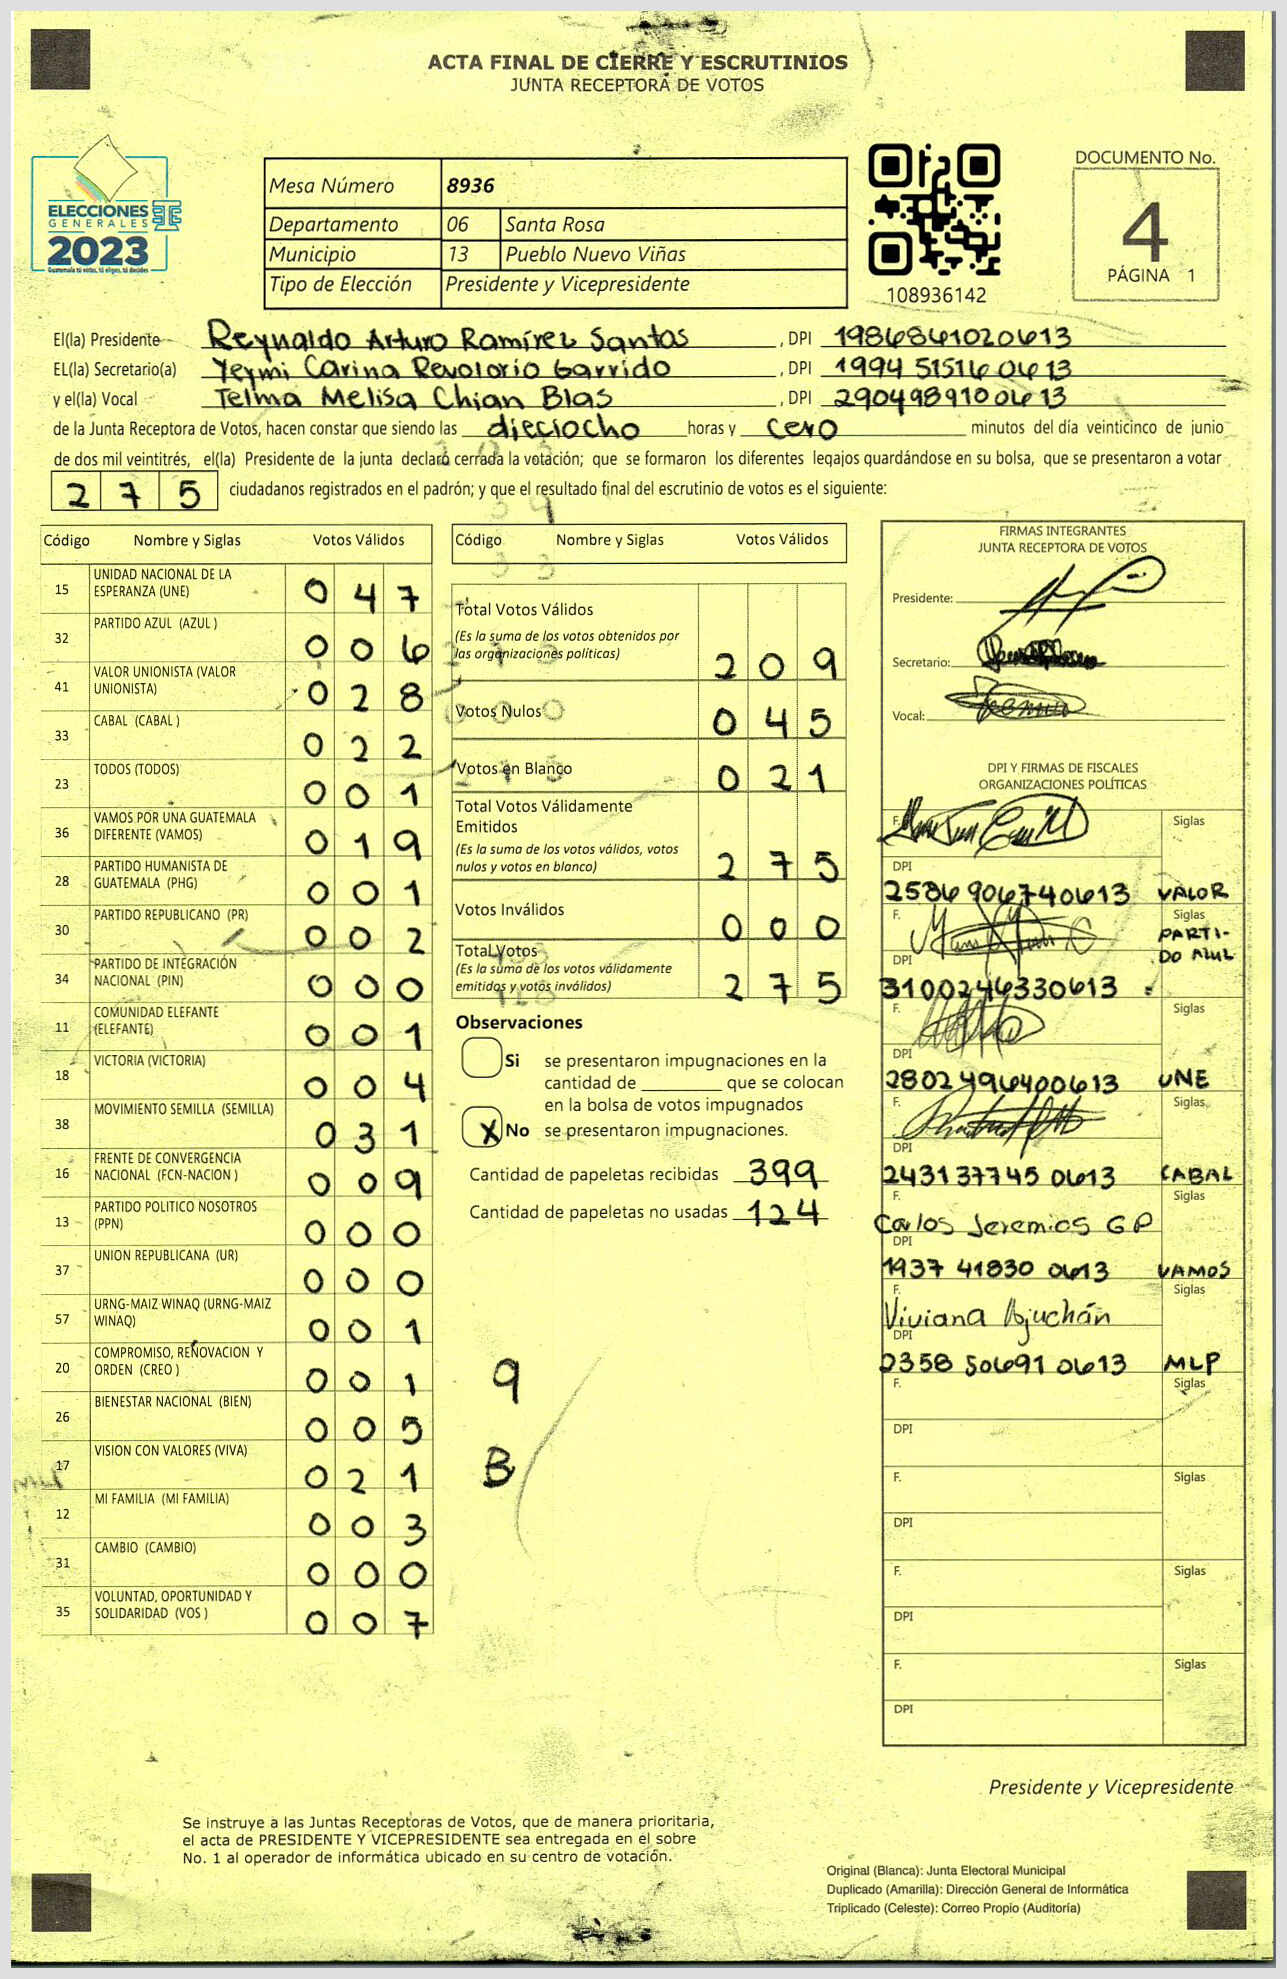 ACTA FINAL DE CIERRE Y ESCRUTINIOS
JUNTA RECEPTORA DE VOTOS
ELECCIONES
GENERALES
2023
Guatemala tú votas, tú eliges, tú decides
Mesa Número 8936
Departamento 06 Santa Rosa
Municipio 13 Pueblo Nuevo Viñas
Tipo de Elección Presidente y Vicepresidente
108936142
DOCUMENTO No.
4
PÁGINA 1
El(la) Presidente Reynaldo Arturo Ramírez Santos , DPI 1986861020613
EL(la) Secretario(a) Yeymi Carina Revolorio Garrido , DPI 1994 51516 0613
y el(la) Vocal Telma Melisa Chian Blas , DPI 2904989100613
de la Junta Receptora de Votos, hacen constar que siendo las dieciocho horas y cero minutos del día veinticinco de junio
de dos mil veintitrés, el(la) Presidente de la junta declaró cerrada la votación; que se formaron los diferentes legajos guardándose en su bolsa, que se presentaron a votar
275 ciudadanos registrados en el padrón; y que el resultado final del escrutinio de votos es el siguiente:
Código Nombre y Siglas Votos Válidos
15 UNIDAD NACIONAL DE LA ESPERANZA (UNE) 047
32 PARTIDO AZUL (AZUL ) 006
41 VALOR UNIONISTA (VALOR UNIONISTA) 028
33 CABAL (CABAL ) 022
23 TODOS (TODOS) 001
36 VAMOS POR UNA GUATEMALA DIFERENTE (VAMOS) 019
28 PARTIDO HUMANISTA DE GUATEMALA (PHG) 001
30 PARTIDO REPUBLICANO (PR) 002
34 PARTIDO DE INTEGRACIÓN NACIONAL (PIN) 000
11 COMUNIDAD ELEFANTE (ELEFANTE) 001
18 VICTORIA (VICTORIA) 004
38 MOVIMIENTO SEMILLA (SEMILLA) 031
16 FRENTE DE CONVERGENCIA NACIONAL (FCN-NACION ) 009
13 PARTIDO POLITICO NOSOTROS (PPN) 000
37 UNION REPUBLICANA (UR) 000
57 URNG-MAIZ WINAQ (URNG-MAIZ WINAQ) 001
20 COMPROMISO, RENOVACION Y ORDEN (CREO ) 001
26 BIENESTAR NACIONAL (BIEN) 005
17 VISION CON VALORES (VIVA) 021
12 MI FAMILIA (MI FAMILIA) 003
31 CAMBIO (CAMBIO) 000
35 VOLUNTAD, OPORTUNIDAD Y SOLIDARIDAD (VOS ) 007
Código Nombre y Siglas Votos Válidos
Total Votos Válidos
(Es la suma de los votos obtenidos por
las organizaciones políticas) 209
Votos Nulos 045
Votos en Blanco 021
Total Votos Válidamente
Emitidos
(Es la suma de los votos válidos, votos
nulos y votos en blanco) 275
Votos Inválidos 000
Total Votos
(Es la suma de los votos válidamente
emitidos y votos inválidos) 275
Observaciones
Si se presentaron impugnaciones en la
cantidad de ________ que se colocan
en la bolsa de votos impugnados
X No se presentaron impugnaciones.
Cantidad de papeletas recibidas 399
Cantidad de papeletas no usadas 124
9
B
FIRMAS INTEGRANTES
JUNTA RECEPTORA DE VOTOS
Presidente:
Secretario:
Vocal:
DPI Y FIRMAS DE FISCALES
ORGANIZACIONES POLÍTICAS
F. Siglas
DPI
2586906740613 VALOR
F. Siglas
DPI PARTI-
DO AZUL
3100246330613
F. Siglas
DPI
2802496400613 UNE
F. Siglas
DPI
243137745 0613 CABAL
F. Siglas
Carlos Jeremias G P
DPI
1937 41830 0613 VAMOS
F. Siglas
Viviana Ajuchán
DPI
2358 50691 0613 MLP
F. Siglas
DPI
F. Siglas
DPI
F. Siglas
DPI
F. Siglas
DPI
Presidente y Vicepresidente
Se instruye a las Juntas Receptoras de Votos, que de manera prioritaria,
el acta de PRESIDENTE Y VICEPRESIDENTE sea entregada en el sobre
No. 1 al operador de informática ubicado en su centro de votación.
Original (Blanca): Junta Electoral Municipal
Duplicado (Amarilla): Dirección General de Informática
Triplicado (Celeste): Correo Propio (Auditoría)